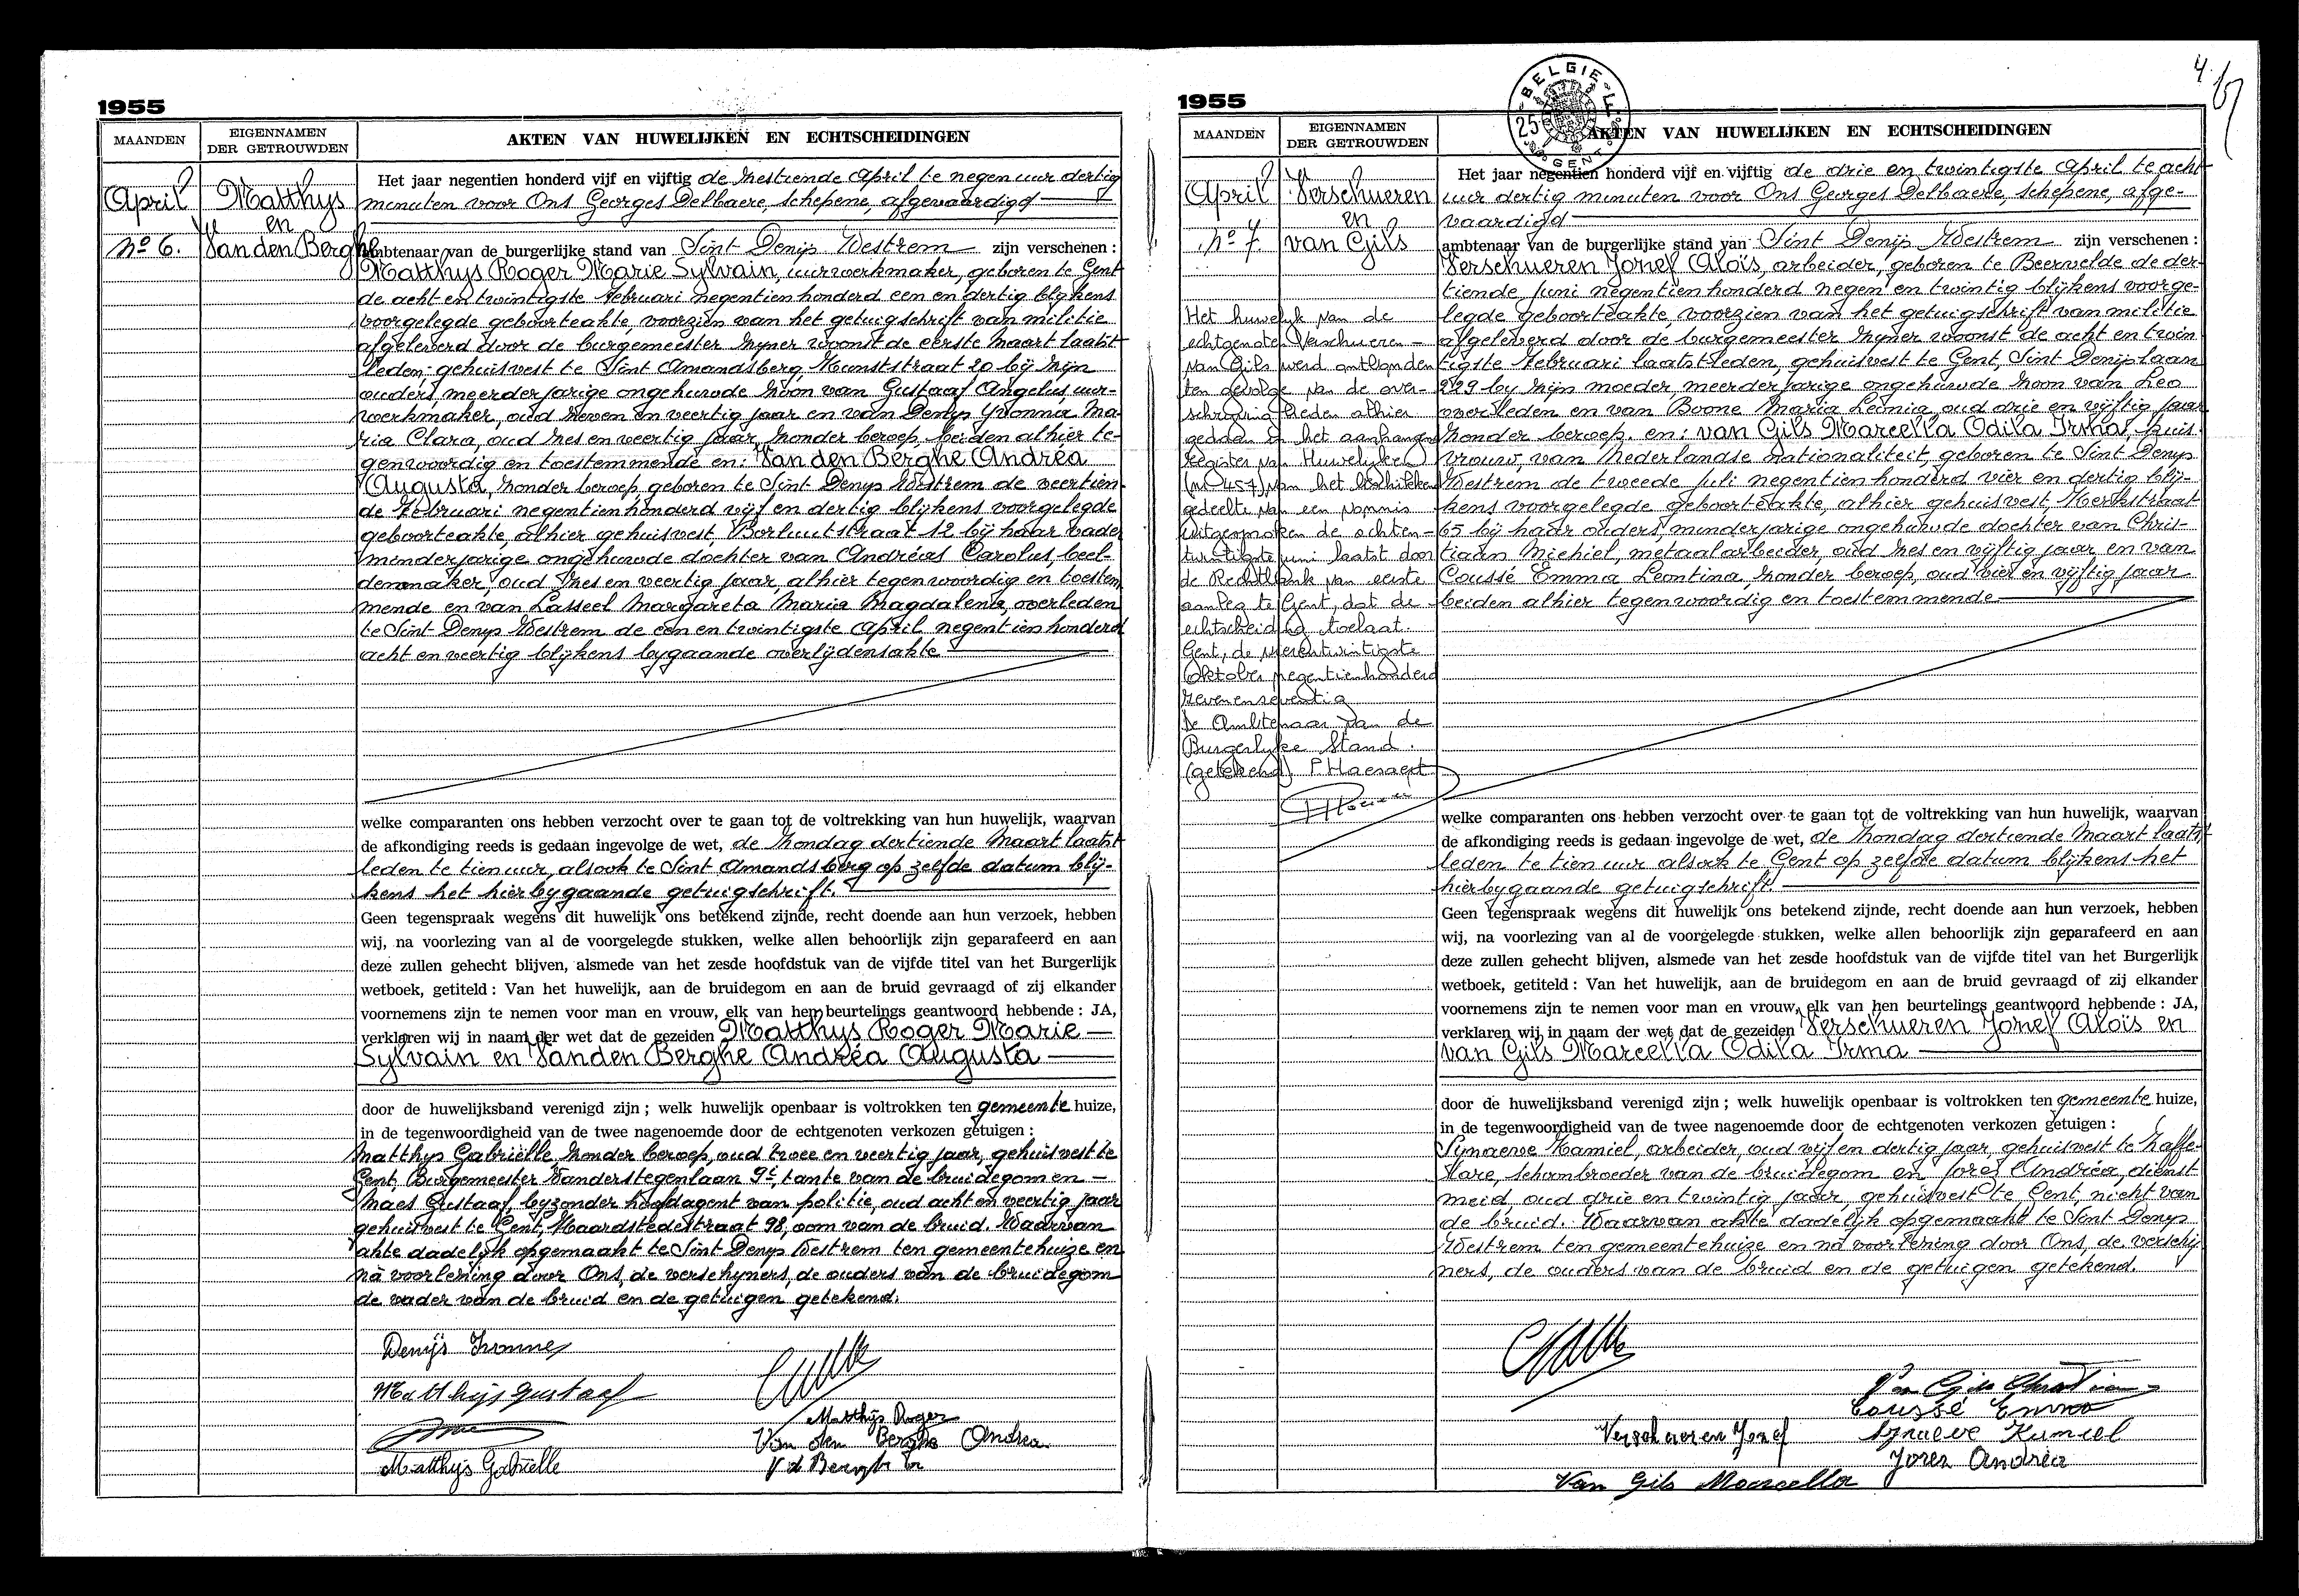 1955
MAANDEN
EIGENNAMEN
DER GETROUWDEN
AKTEN VAN HUWELIJKEN EN ECHTSCHEIDINGEN
April
No 6.
Matthys
en
Van den Berghe
Het jaar negentien honderd vijf en vijftig de zestiende April te negen uur dertig
minuten voor Ons Georges Delbaere, schepene, afgevaardigd
ambtenaar van de burgerlijke stand van Sint Denijs Westrem zijn verschenen :
Matthys Roger Marie Sylvain, uurwerkmaker, geboren te Gent
de acht en twintigste Februari negentienhonderd een en dertig blijkens
voorgelegde geboorteakte, voorzien van het getuigschrift van militie
afgeleverd door de burgemeester zijner woonst de eerste Maart laatst-
leden, gehuisvest te Sint Amandsberg, Kunststraat 20 bij zijn
ouders, meerderjarige ongehuwde zoon van Gustaaf Angelus, uur-
werkmaker, oud zeven en veertig jaar en van Denijs Yvonna Ma-
ria Clara, oud zes en veertig jaar, zonder beroep, beiden alhier te-
genwoordig en toestemmende en: Van den Berghe Andréa
Augusta, zonder beroep, geboren te Sint Denys Westrem de veertien-
de Februari negentienhonderd vijf en dertig blijkens voorgelegde
geboorteakte, alhier gehuisvest, Borluutstraat 12 bij haar vader
minderjarige ongehuwde dochter van Andréas Carolus, beel-
denmaker, oud zes en veertig jaar, alhier tegenwoordig en toestem-
mende en van Lasseel Margareta Maria Magdalena, overleden
te Sint Denys Westrem de een en twintigste April negentienhonderd
acht en veertig blijkens bygaande overlijdensakte
welke comparanten ons hebben verzocht over te gaan tot de voltrekking van hun huwelijk, waarvan
de afkondiging reeds is gedaan ingevolge de wet, de Zondag dertiende Maart laatst-
leden te tien uur, alsook te Sint Amandsberg op zelfde datum blij-
kens het hierbygaande getuigschrift.
Geen tegenspraak wegens dit huwelijk ons betekend zijnde, recht doende aan hun verzoek, hebben
wij, na voorlezing van al de voorgelegde stukken, welke allen behoorlijk zijn geparafeerd en aan
deze zullen gehecht blijven, alsmede van het zesde hoofdstuk van de vijfde titel van het Burgerlijk
wetboek, getiteld : Van het huwelijk, aan de bruidegom en aan de bruid gevraagd of zij elkander
voornemens zijn te nemen voor man en vrouw, elk van hen beurtelings geantwoord hebbende : JA,
verklaren wij in naam der wet dat de gezeiden Matthys Roger Marie
Sylvain en Van den Berghe Andréa Augusta
door de huwelijksband verenigd zijn ; welk huwelijk openbaar is voltrokken ten gemeente huize,
in de tegenwoordigheid van de twee nagenoemde door de echtgenoten verkozen getuigen :
Matthys Gabriëlle, zonder beroep, oud twee en veertig jaar, gehuisvest te
Gent, Burgemeester Vanderstegenlaan 9c, tante van de bruidegom en
Maes Gustaaf, byzonder hoofdagent van politie, oud acht en veertig jaar
gehuisvest te Gent, 98, oom van de bruid. Waarvan
akte dadelyk opgemaakt te Sint Denys Westrem ten gemeentehuize en
nà voorlezing door Ons, de verschyners, de ouders van de bruidegom
de vader van de bruid en de getuigen getekend.
Denijs Yvonne
Matthijs Gustaaf
Matthijs Roger
Van den Berghe Andrea
Matthijs Gabrielle
4.
1955
BELGIE
25
GENT
MAANDEN
EIGENNAMEN
DER GETROUWDEN
AKTEN VAN HUWELIJKEN EN ECHTSCHEIDINGEN
April
No 7.
Verschueren
en
van Gils
Het huwelijk van de
echtgenoten Verschueren -
van Gils werd ontbonden
ten gevolge van de over-
schrijving heden alhier
gedaan in het aanhangend
Register van Huwelijken
(nr 457) van het beschikkend
gedeelte van een vonnis
uitgesproken de achten-
twintigste juni laatst door
de Rechtbank van eerste
aanleg te Gent, dat de
echtscheiding toelaat.
Gent, de
Oktober negentienhonderd
zevenenseventig
De Ambtenaar van de
Burgerlyke Stand.
(getekend)
Het jaar negentien honderd vijf en vijftig de drie en twintigste April te acht
uur dertig minuten voor Ons Georges Delbaere, schepene, afge-
vaardigd
ambtenaar van de burgerlijke stand van Sint Denijs Westrem zijn verschenen :
Verschueren Jozef Aloïs, arbeider, geboren te Beervelde de der-
tiende Juni negentienhonderd negen en twintig blijkens voorge-
legde geboorteakte, voorzien van het getuigschrift van militie
afgeleverd door de burgemeester zijner woonst de acht en twin
tigste Februari laatstleden, gehuisvest te Gent, Sint Denijslaan
229 by zijn moeder, meerderjarige ongehuwde zoon van Leo
overleden en van Boone Maria Leonia, oud drie en vijftig jaar
zonder beroep. en: van Gils Marcella Odila Irma, huis-
vrouw, van Nederlandse nationaliteit, geboren te Sint Denys
Westrem de tweede Juli negentienhonderd vier en dertig blij-
kens voorgelegde geboorteakte, alhier gehuisvest, Kerkstraat
65 bij haar ouders, minderjarige ongehuwde dochter van Chris-
tiaan Michiel, metaalarbeider, oud zes en vijftig jaar en van
Coussé Emma Leontina, zonder beroep, oud vier en vijftig jaar
beiden alhier tegenwoordig en toestemmende
welke comparanten ons hebben verzocht over te gaan tot de voltrekking van hun huwelijk, waarvan
de afkondiging reeds is gedaan ingevolge de wet, de Zondag dertiende Maart laatst-
leden te tien uur alsook te Gent op zelfde datum blijkens het
hierbygaande getuigschrift
Geen tegenspraak wegens dit huwelijk ons betekend zijnde, recht doende aan hun verzoek, hebben
wij, na voorlezing van al de voorgelegde stukken, welke allen behoorlijk zijn geparafeerd en aan
deze zullen gehecht blijven, alsmede van het zesde hoofdstuk van de vijfde titel van het Burgerlijk
wetboek, getiteld : Van het huwelijk, aan de bruidegom en aan de bruid gevraagd of zij elkander
voornemens zijn te nemen voor man en vrouw, elk van hen beurtelings geantwoord hebbende : JA,
verklaren wij in naam der wet dat de gezeiden Verschueren Jozef Aloïs en
van Gils Marcella Odila Irma
door de huwelijksband verenigd zijn ; welk huwelijk openbaar is voltrokken ten gemeente huize,
in de tegenwoordigheid van de twee nagenoemde door de echtgenoten verkozen getuigen :
Synaeve Kamiel, arbeider, oud vijf en dertig jaar, gehuisvest te Zaffe-
lare, schoonbroeder van de bruidegom en Jorez Andréa, dienst-
meid, oud drie en twintig jaar, gehuisvest te Gent, nicht van
de bruid. Waarvan akte dadelijk opgemaakt te Sint Denys
Westrem ten gemeentehuize en nà voorlezing door Ons, de verschij-
ners, de ouders van de bruid en de getuigen getekend.
Van Gils Christian
Coussé Emma
Verschueren Jozef
Synaeve Kamiel
Jorez Andréa
Van Gils Marcella